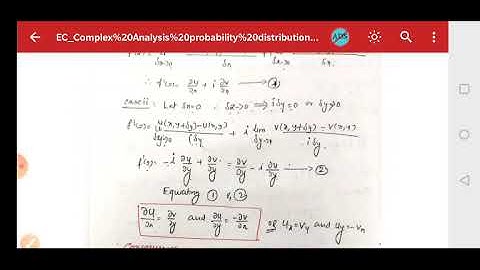 EC_Complex%20Analysis%20probability%20distribution...
ADS
δx→0 δx δx→0 δx
∴ f'(z) = ∂u/∂x + i ∂v/∂x → ①
case ii: Let δx=0 ∴ δz→0 ⟹ iδy=0 or δy→0
f'(z) = lim δy→0 u(x,y+δy)-u(x,y)/iδy + i lim δy→0 v(x,y+δy)-v(x,y)/iδy
f'(z) = -i ∂u/∂y + ∂v/∂y = ∂v/∂y - i ∂u/∂y → ②
Equating ① & ②
∂u/∂x = ∂v/∂y and ∂u/∂y = -∂v/∂x or uₓ=v_y and u_y=-vₓ